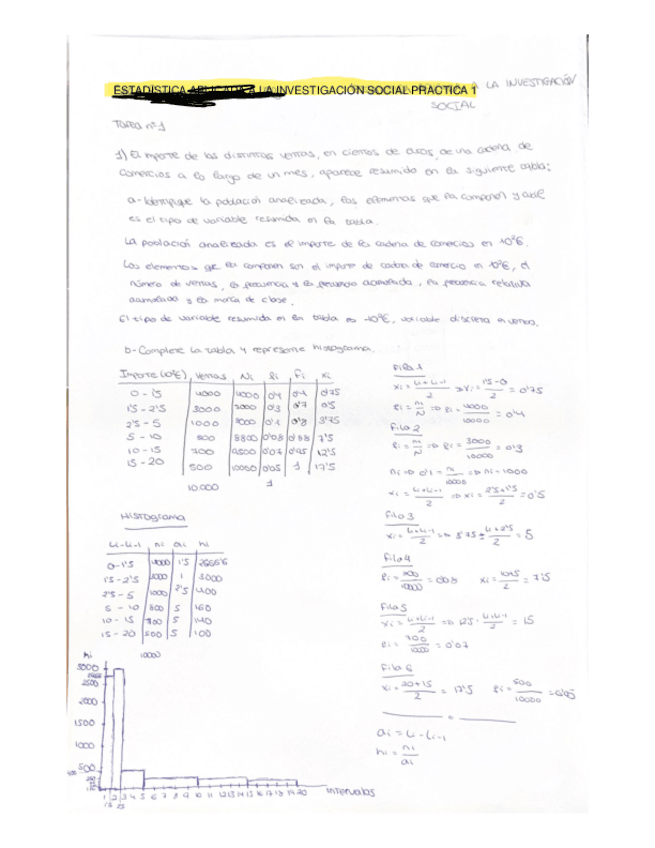 ESTADÍSTICA APLICADA A LA INVESTIGACIÓN SOCIAL PRACTICA 1
A LA INVESTIGACIÓN
SOCIAL
Tarea nº1
1) El importe de las distintas ventas, en cientos de euros, de una cadena de
comercios a lo largo de un mes, aparece resumido en la siguiente tabla:
a- Identifique la población analizada, los elementos que la componen y cuál
es el tipo de variable resumida en la tabla.
La población analizada es el importe de la cadena de comercios en 10²€.
Los elementos que la componen son el importe de cadena de comercio en 10²€, el
número de ventas, la frecuencia y la frecuencia acumulada, la frecuencia relativa
acumulada y la marca de clase.
El tipo de variable resumida en la tabla es 10²€, variable discreta
b- Complete la tabla y represente histograma.
Importe (10²€) Ventas Ni fi Fi xi
0 - 1'5 4000 4000 0'4 0'4 0'75
1'5 - 2'5 3000 7000 0'3 0'7 0'5
2'5 - 5 1000 8000 0'1 0'8 3'75
5 - 10 800 8800 0'08 0'88 7'5
10 - 15 700 9500 0'07 0'95 12'5
15 - 20 500 10000 0'05 1 17'5
10.000 1
Fila 1
xi = Li+Li-1/2 => xi = 1'5-0/2 = 0'75
fi = ni/N => fi = 4000/10000 = 0'4
Fila 2
fi = ni/N => fi = 3000/10000 = 0'3
ni => 0'1 = ni/10000 => ni = 1000
xi = Li+Li-1/2 => xi = 2'5+1'5/2 = 0'5
Fila 3
xi = Li+Li-1/2 => 3'75 = Li+2'5/2 = 5
Fila 4
fi = 800/10000 = 0'08 xi = 10+5/2 = 7'5
Fila 5
xi = Li+Li-1/2 => 12'5 = Li+Li-1/2 = 15
fi = 700/10000 = 0'07
Fila 6
xi = 20+15/2 = 17'5 fi = 500/10000 = 0'05
ai = Li-Li-1
hi = ni/ai
Histograma
Li-Li-1 ni ai hi
0-1'5 4000 1'5 2666'6
1'5 - 2'5 3000 1 3000
2'5 - 5 1000 2'5 400
5 - 10 800 5 160
10 - 15 700 5 140
15 - 20 500 5 100
10000
hi
3000
2500
2000
1500
1000
500
1 2 3 4 5 6 7 8 9 10 11 12 13 14 15 16 17 18 19 20 intervalos
1'5 2'5